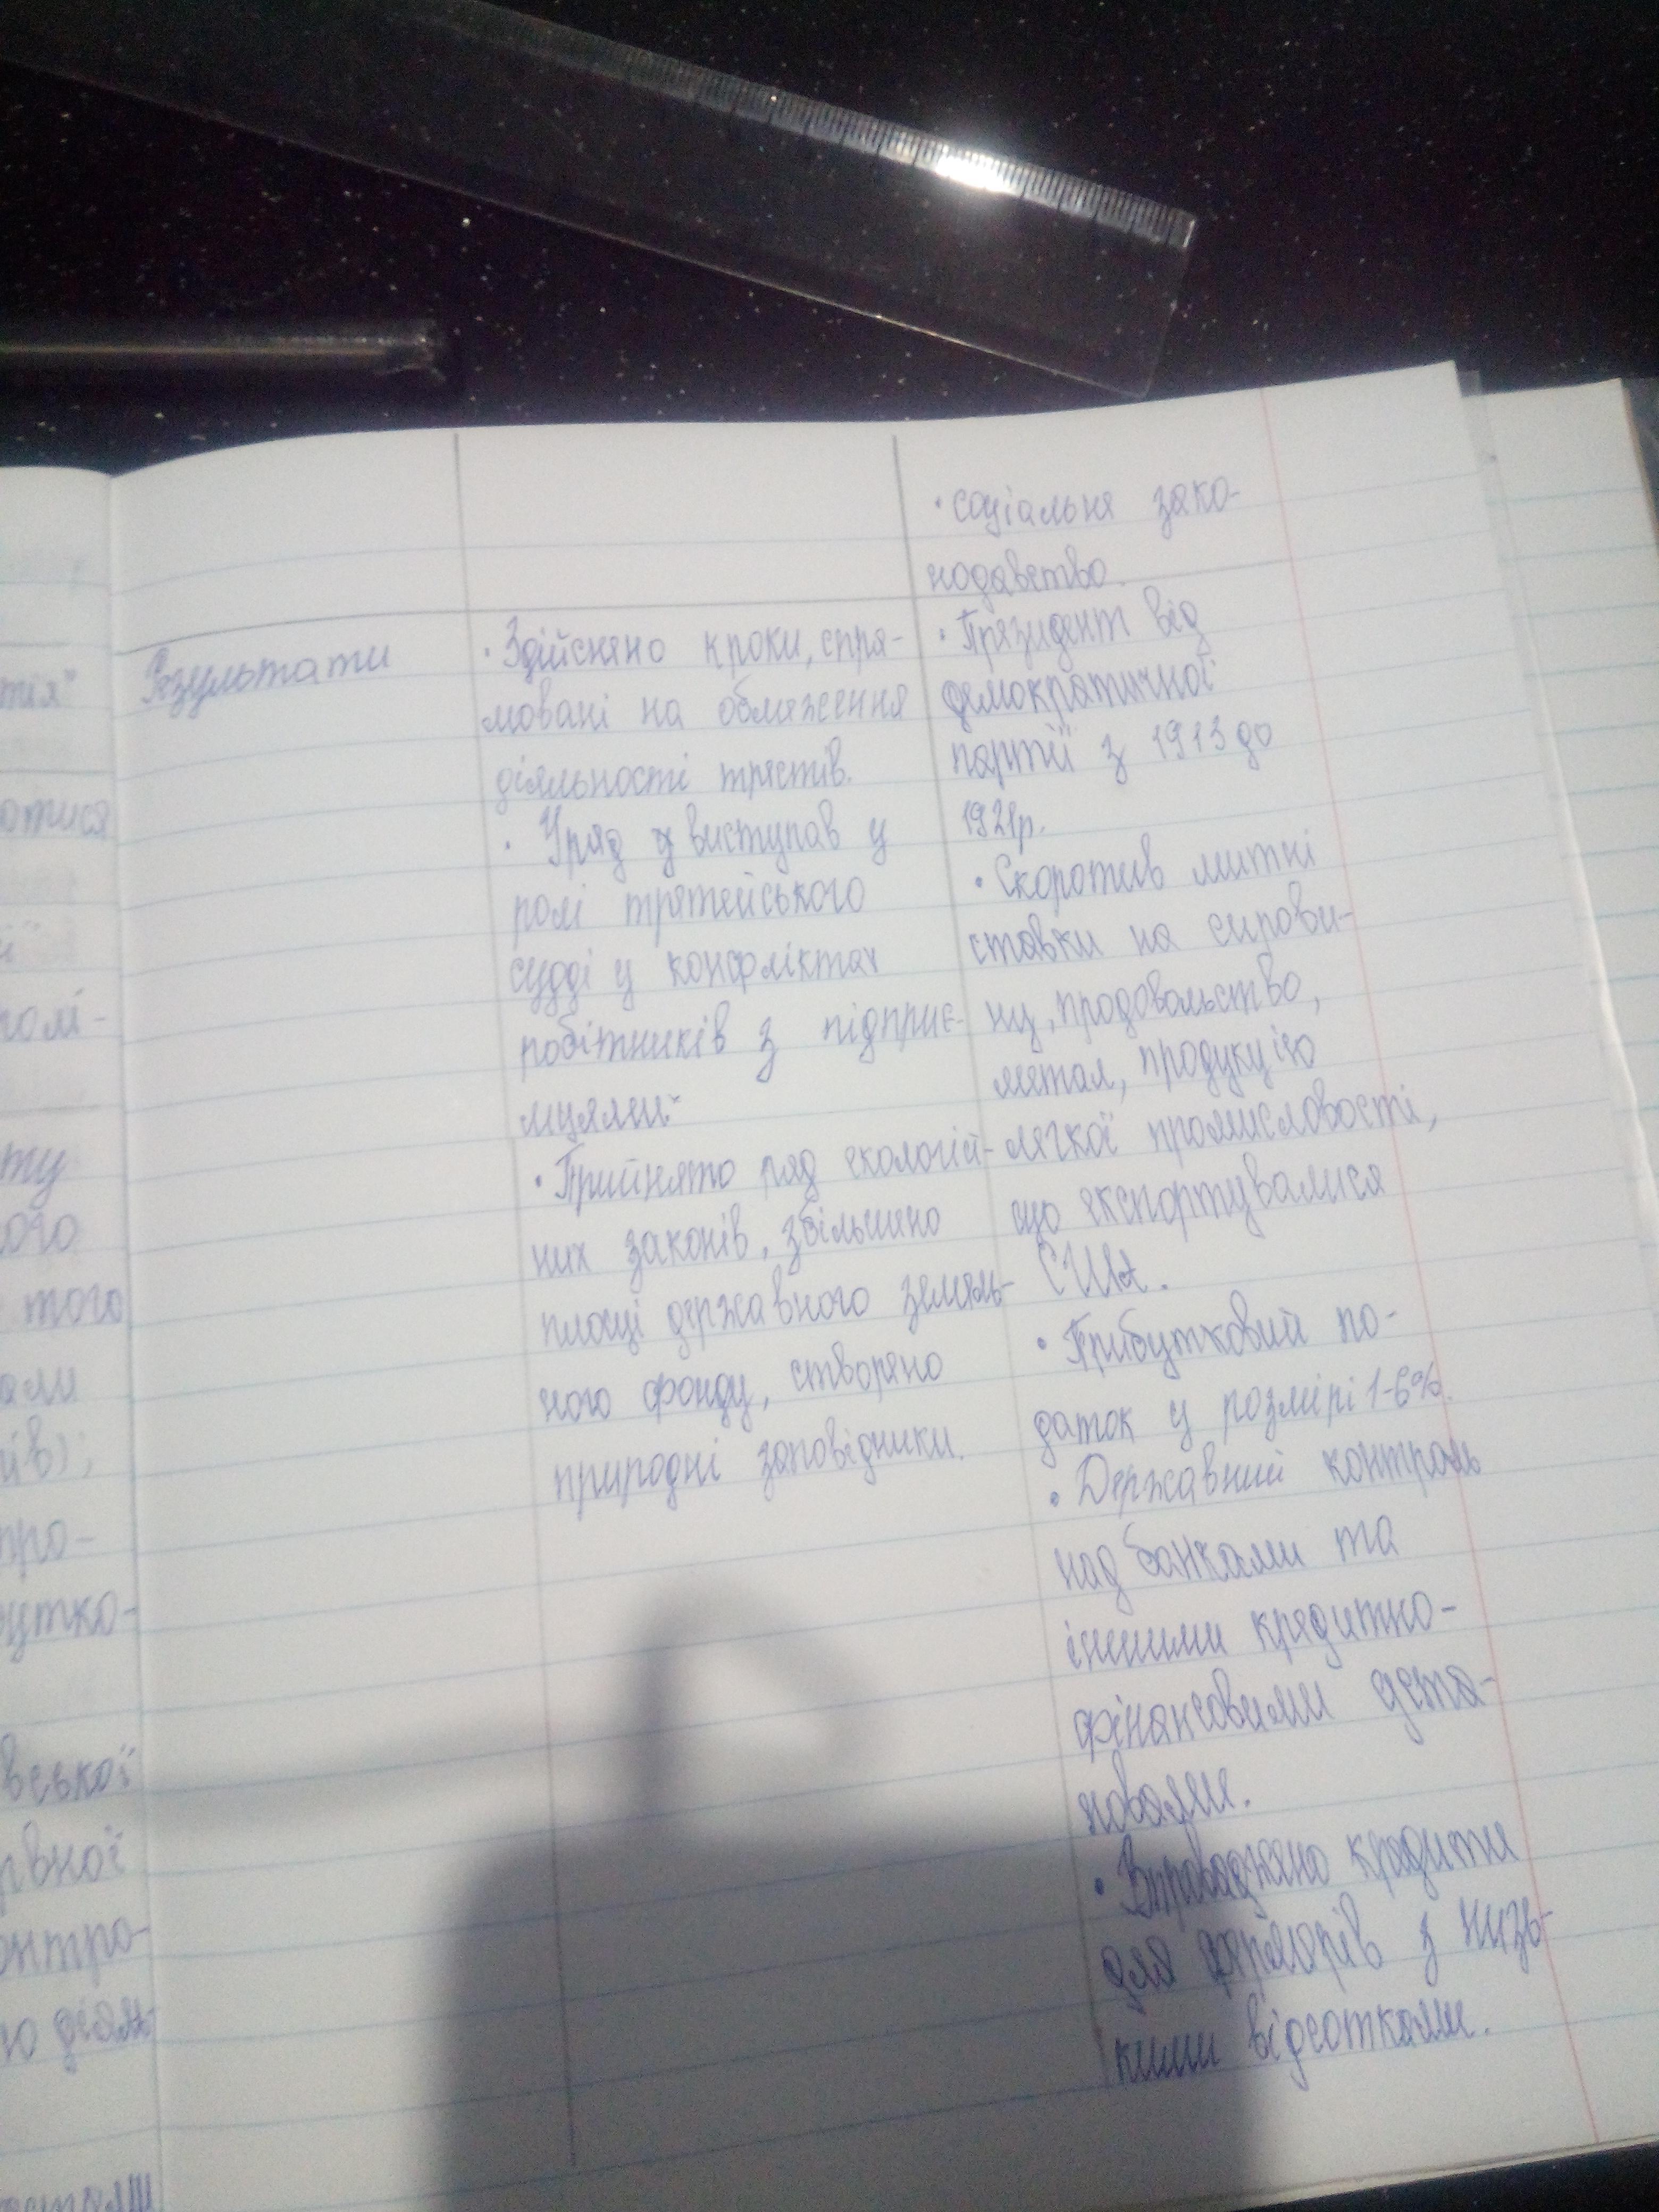 • соціальне зако-
нодавство.
Результати
• Здійснено кроки, спря-
мовані на обмеження
діяльності трестів.
• Уряд виступав у
ролі третейського
судді у конфліктах
робітників з підприє-
мцями.
• Прийнято ряд екологій-
них законів, збільшено
площі державного земель-
ного фонду, створено
природні заповідники.
• Президент від
демократичної
партії з 1913 до
1921р.
• Скоротив митні
ставки на сирови-
ну, продовольство,
метал, продукцію
легкої промисловості,
що експортувалися
США.
• Прибутковий по-
даток у розмірі 1-6%.
• Державний контроль
над банками та
іншими кредитно-
фінансовими уста-
новами.
• Впроваджено кредити
для фермерів з низь-
кими відсотками.
тія"
отися
ту
ого
того
али
ів);
про-
утко-
вської
рвної
онтро-
ю діял-